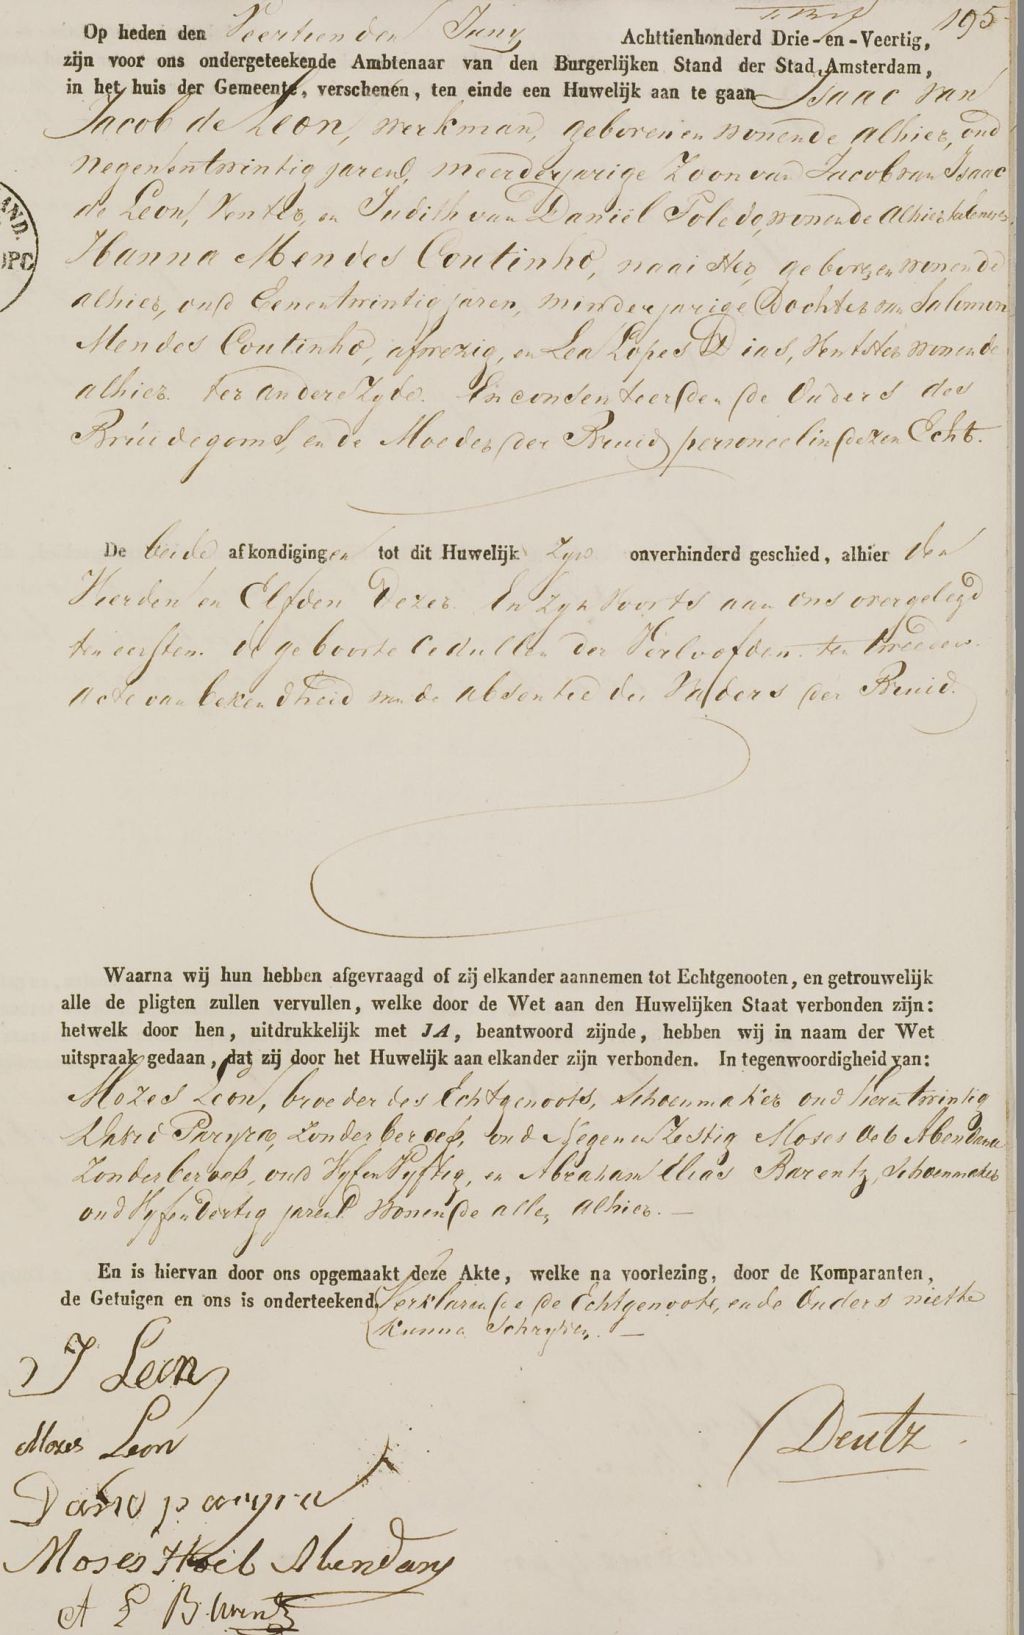 195
Op heden den Veertienden Juny Achttienhonderd Drie-en-Veertig,
zijn voor ons ondergeteekende Ambtenaar van den Burgerlijken Stand der Stad Amsterdam,
in het huis der Gemeente, verschenen, ten einde een Huwelijk aan te gaan Isaac van
Jacob de Leon, werkman, geboren en wonende alhier, oud
negenentwintig jaren, meerderjarige Zoon van Jacob van Isaac
de Leon, Venter, en Judith van Daniël Toledo, wonende alhier ter eenere
Hanna Mendes Coutinho, naaister, geboren en wonende
alhier, oud Eenentwintig jaren, minderjarige Dochter van Salomon
Mendes Coutinho, afwezig, en Lea Lopes Dias, Ventster wonende
alhier. ter andere Zyde. En consenteerden de Ouders des
Bruidegoms, en de Moeder der Bruid personeel in dezen Echt.
De beide afkondigingen tot dit Huwelijk Zyn onverhinderd geschied, alhier den
Vierden en Elfden Dezer. En Zyn Voorts aan ons overgelegd
ten eersten. de geboorte Cedullen der Verloofden. ten tweeden.
acte van bekendheid van de absentie des Vaders der Bruid.
AND.
Waarna wij hun hebben afgevraagd of zij elkander aannemen tot Echtgenooten, en getrouwelijk
alle de pligten zullen vervullen, welke door de Wet aan den Huwelijken Staat verbonden zijn:
hetwelk door hen, uitdrukkelijk met JA, beantwoord zijnde, hebben wij in naam der Wet
uitspraak gedaan, dat zij door het Huwelijk aan elkander zijn verbonden. In tegenwoordigheid van:
Mozes Leon, broeder des Echtgenoots, Schoenmaker oud Vierentwintig
David Paryra, Zonder beroep, oud Negenen Zestig Moses Oeb Abendana
Zonder beroep, oud Vyfen Vyftig, en Abraham Elias Barentz, Schoenmaker
oud Vyfen Dertig jaren wonende allen alhier.
En is hiervan door ons opgemaakt deze Akte, welke na voorlezing, door de Komparanten,
de Getuigen en ons is onderteekend, Verklarende de Echtgenoote, en de Ouders niet te
kunnen Schryven.
J Leon
Mozes Leon
Deutz
David paryra
Moses Abendany
A E Barentz